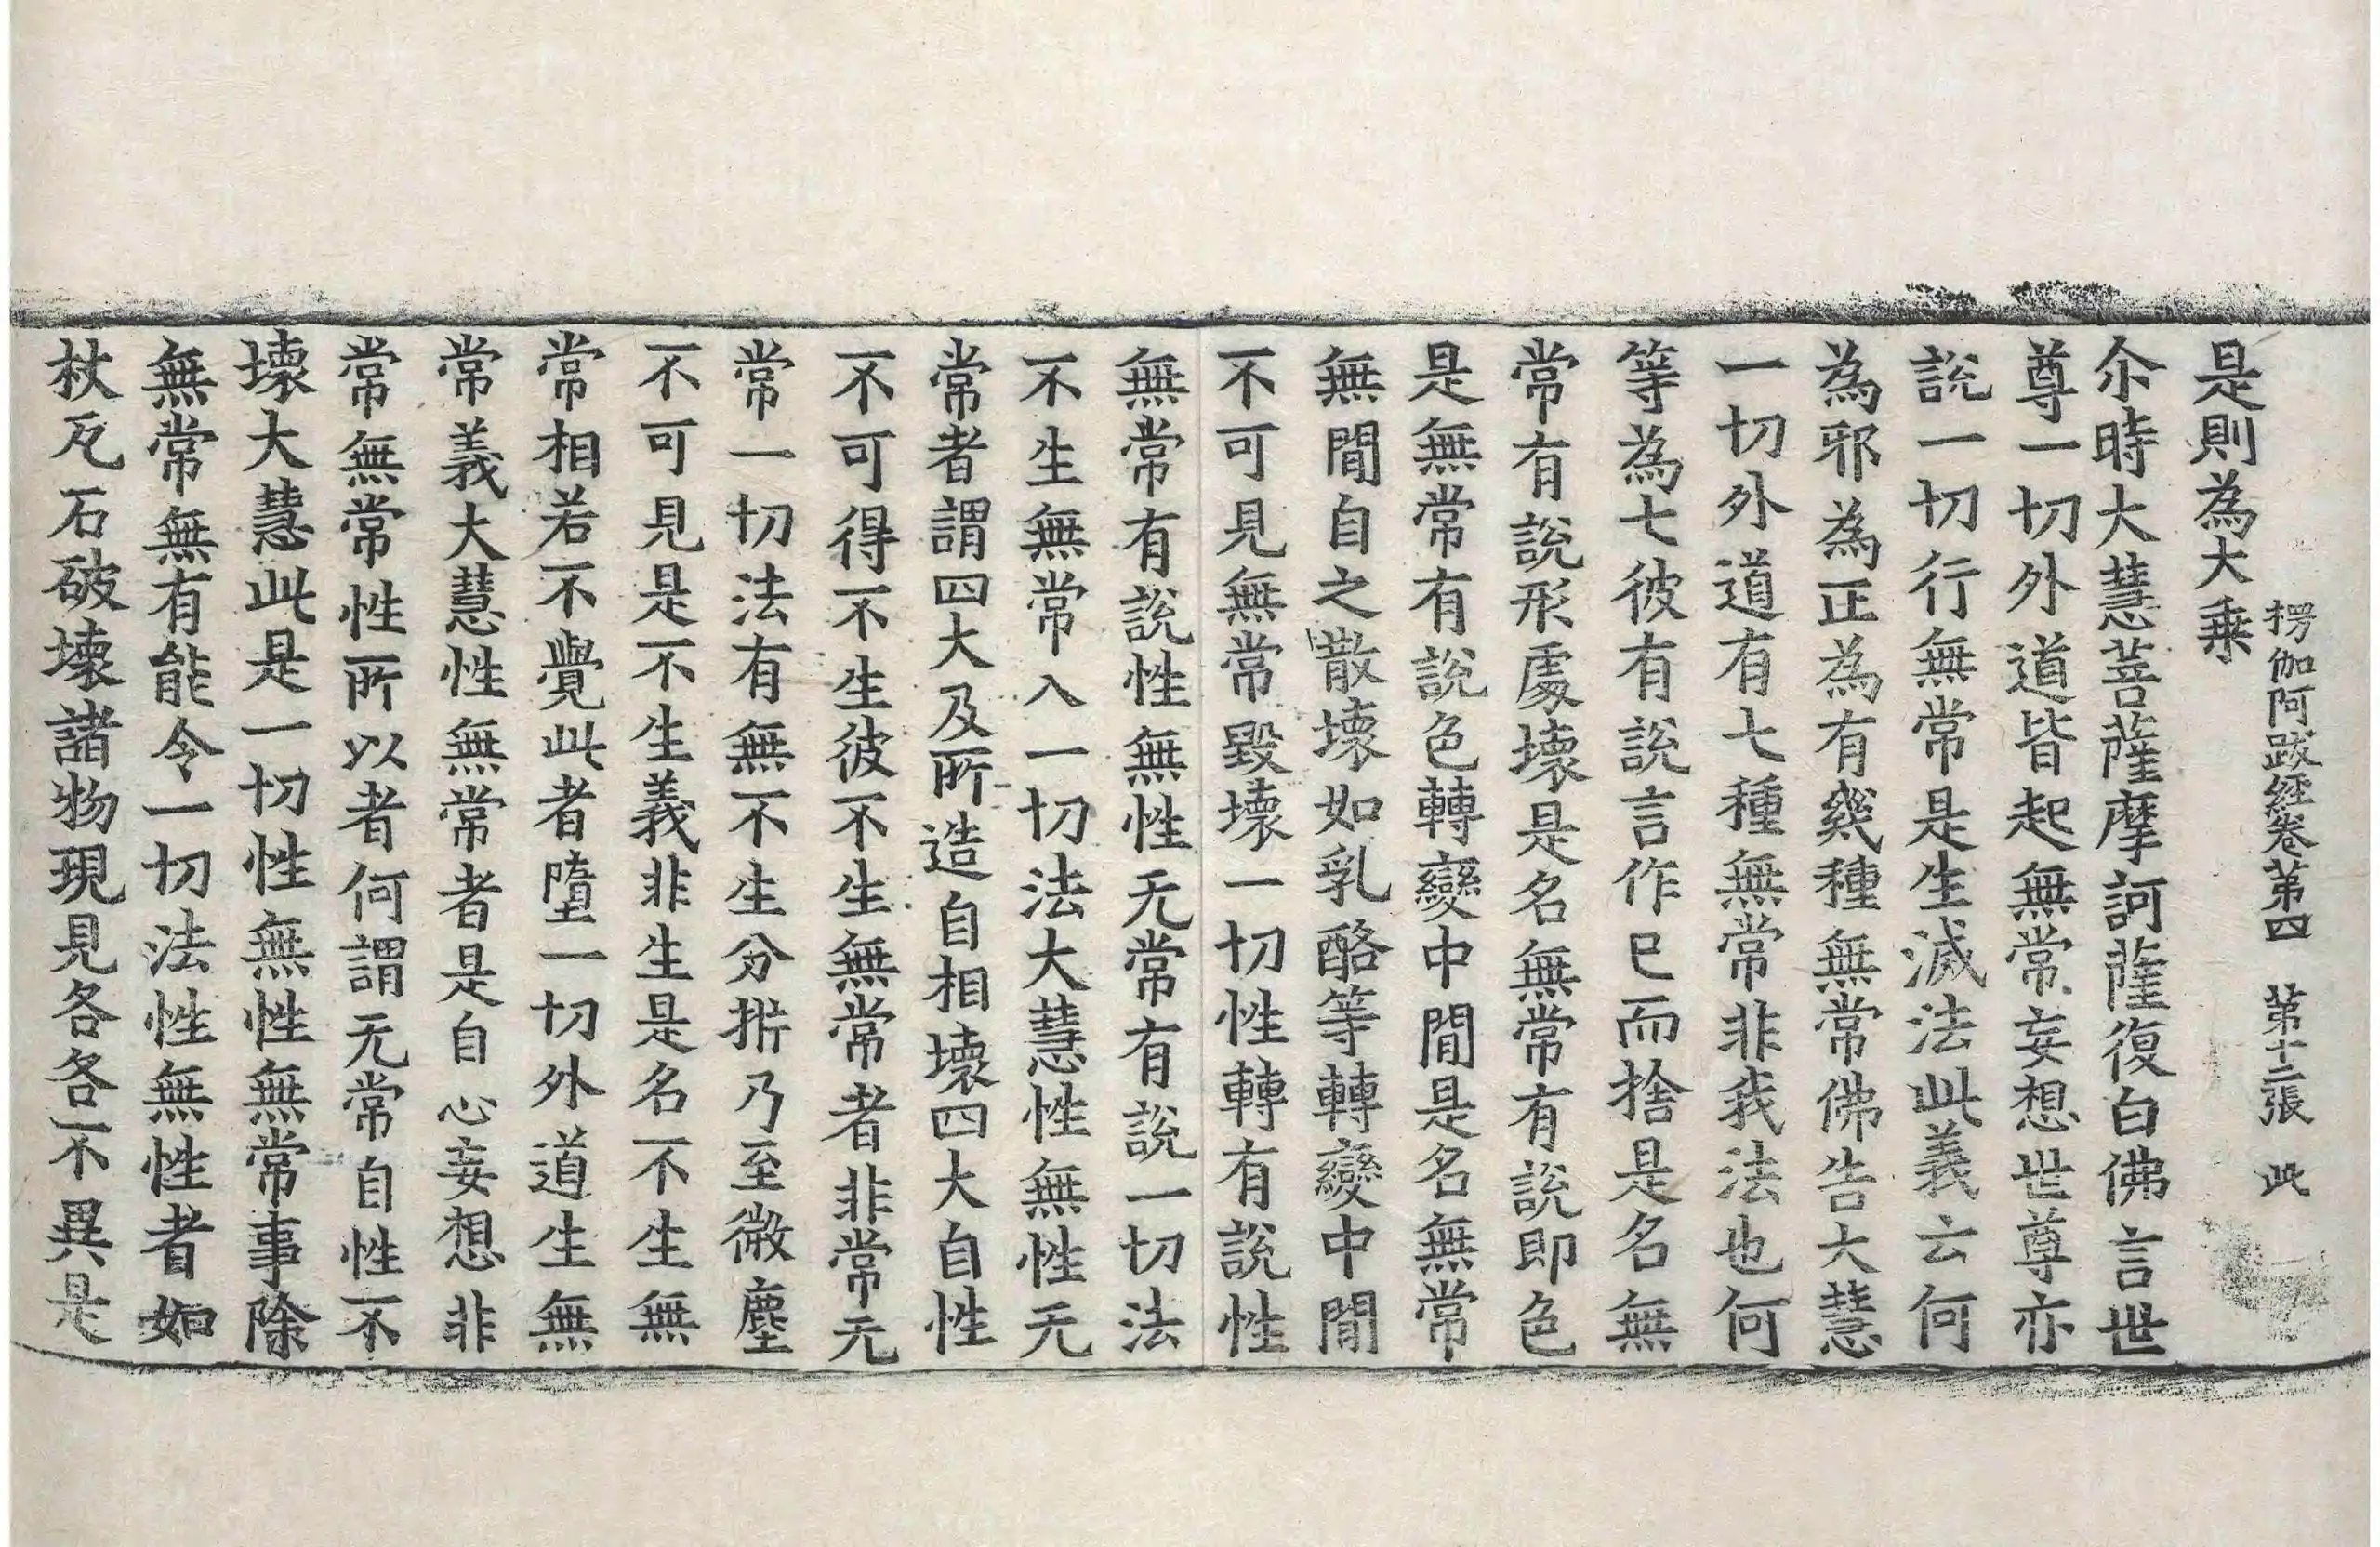 楞伽阿跋經卷第四　第十二張　此
是則為大乗
尒時大慧菩薩摩訶薩復白佛言世
尊一切外道皆起無常妄想世尊亦
說一切行無常是生滅法此義云何
為邪為正為有幾種無常佛告大慧
一切外道有七種無常非我法也何
等為七彼有說言作已而捨是名無
常有說形處壞是名無常有說即色
是無常有說色轉變中間是名無常
無間自之散壞如乳酪等轉變中間
不可見無常毀壞一切性轉有說性
無常有說性無性无常有說一切法
不生無常入一切法大慧性無性无
常者謂四大及所造自相壞四大自性
不可得不生彼不生無常者非常无
常一切法有無不生分析乃至微塵
不可見是不生義非生是名不生無
常相若不覺此者墮一切外道生無
常義大慧性無常者是自心妄想非
常無常性所以者何謂无常自性不
壞大慧此是一切性無性無常事除
無常無有能令一切法性無性者如
杖瓦石破壞諸物現見各各不異是